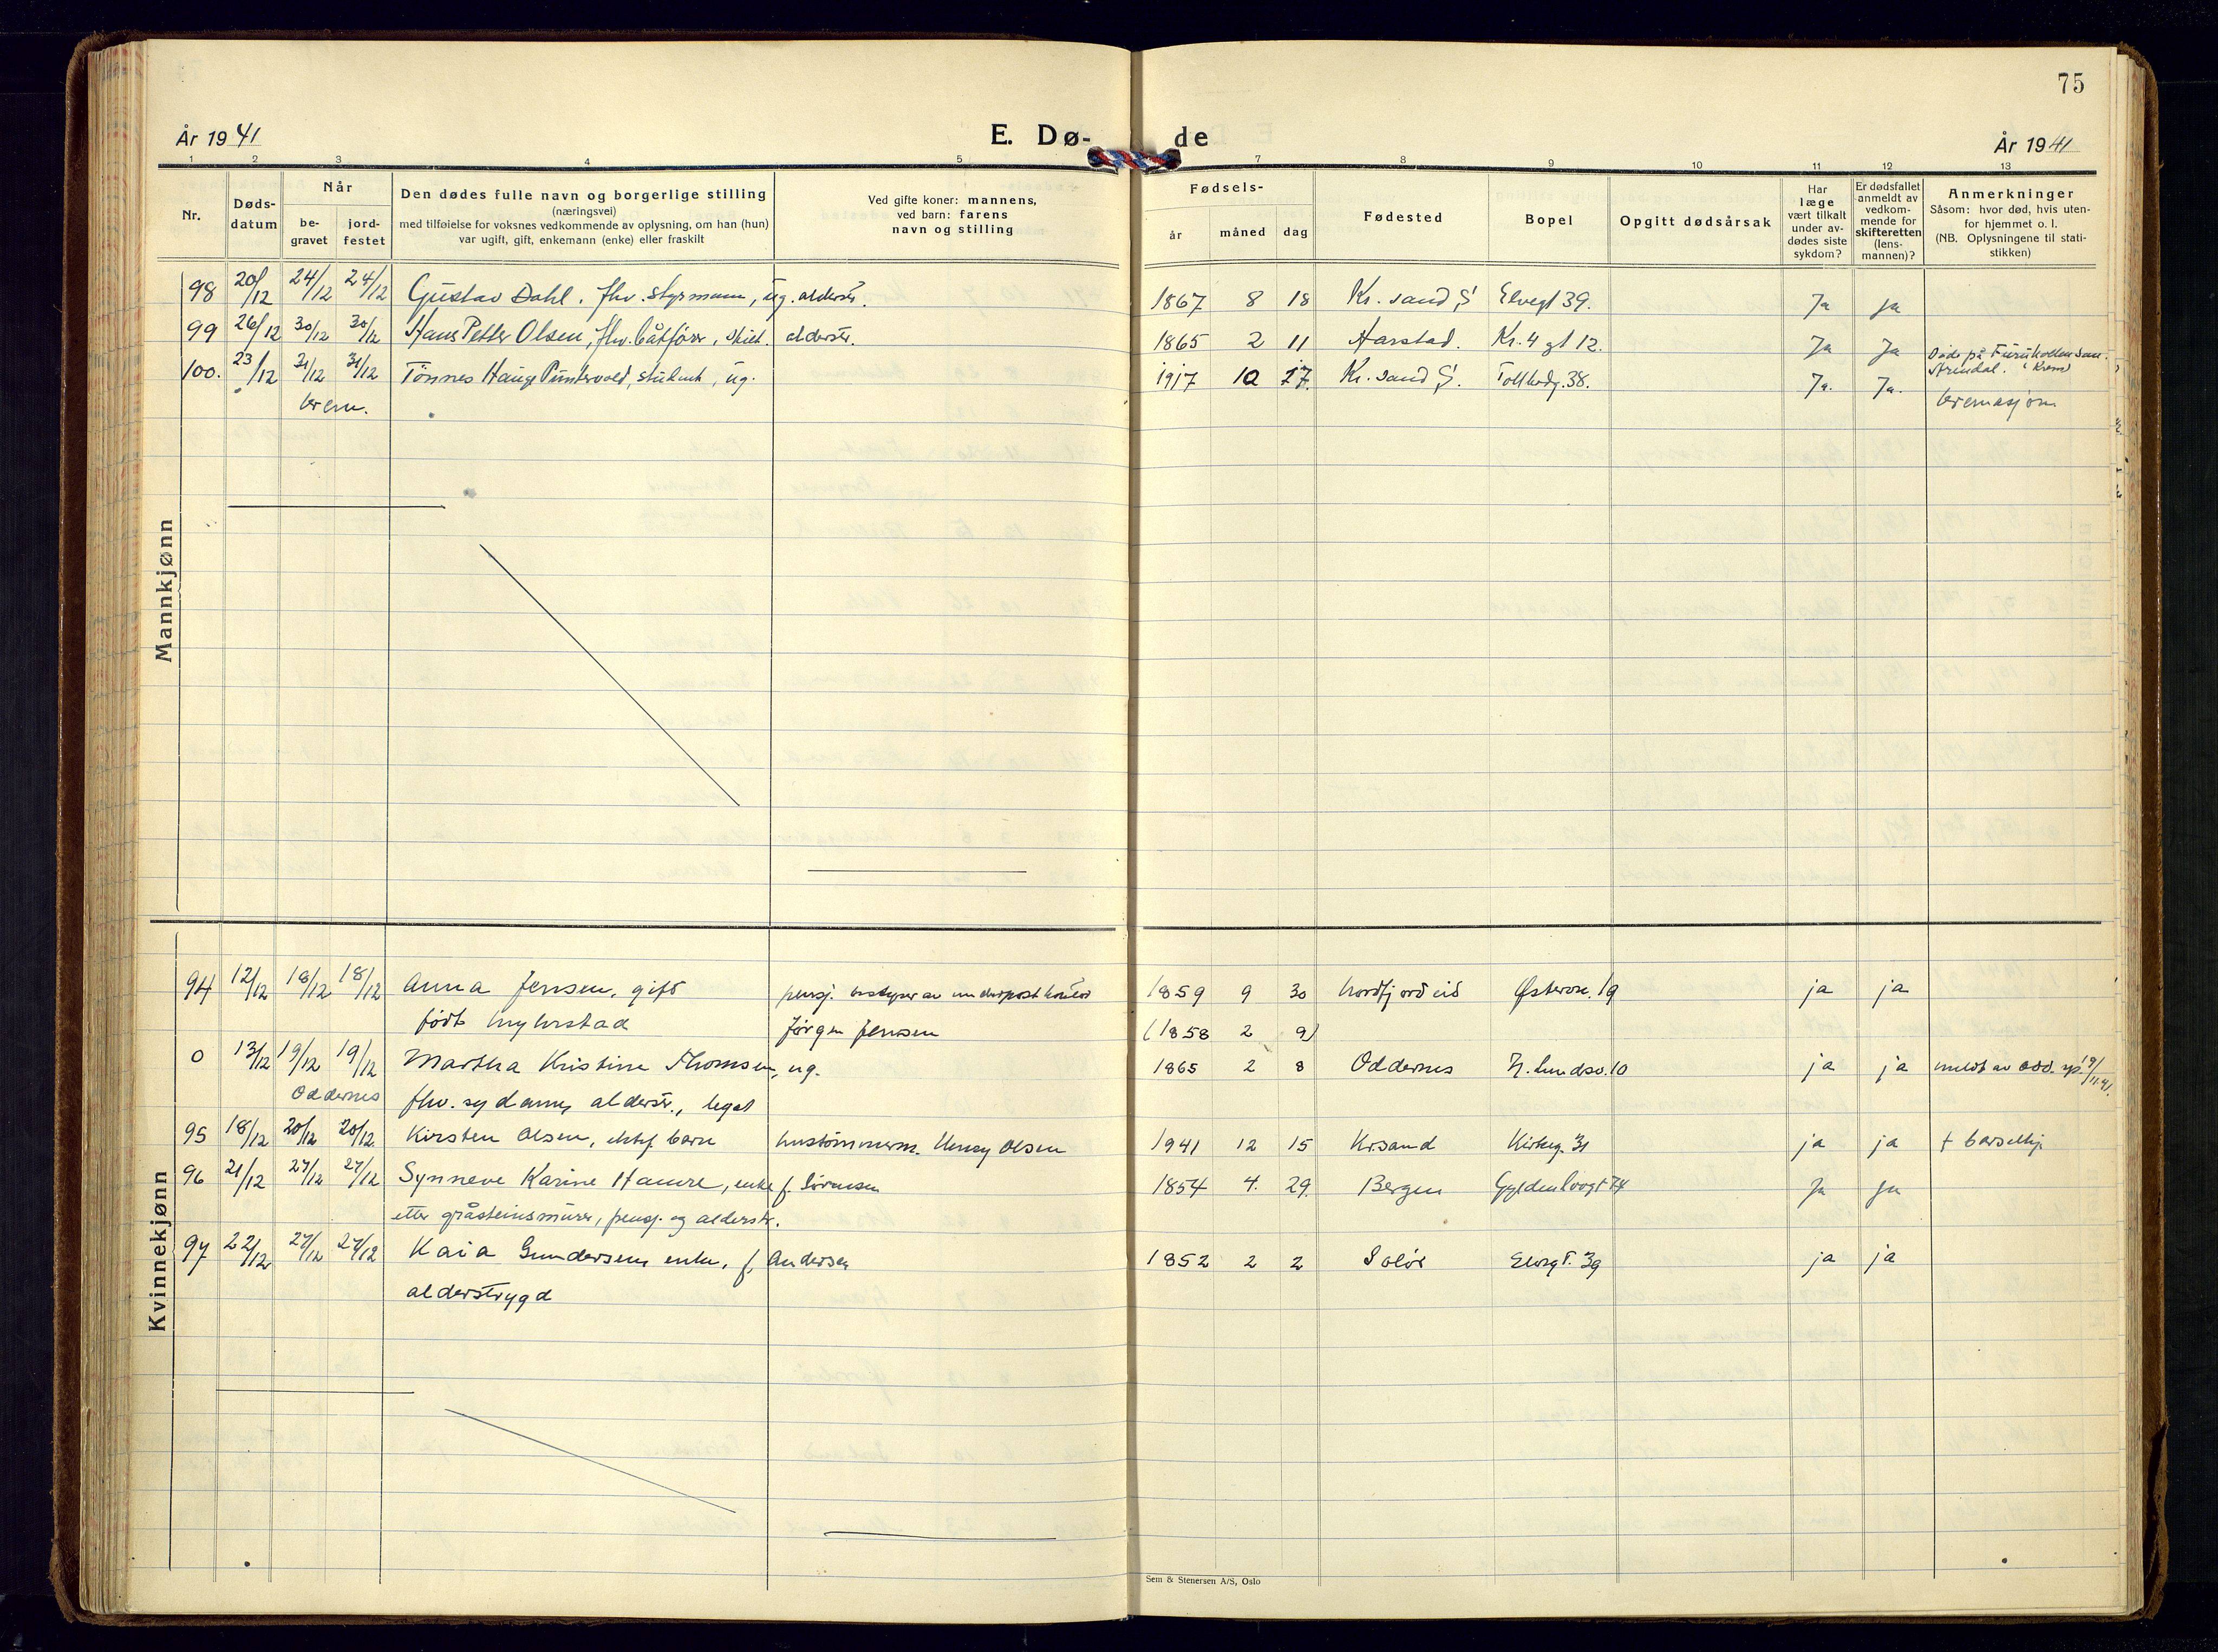 75
År 1941
E. Dø-
de
År 1941
1 2 3 4 5 7 8 9 10 11 12 13
Nr.
Døds-
datum
Når
be-
gravet
jord-
festet
Den dødes fulle navn og borgerlige stilling
(næringsvei)
med tilføielse for voksnes vedkommende av oplysning, om han (hun)
var ugift, gift, enkemann (enke) eller fraskilt
Ved gifte koner: mannens,
ved barn: farens
navn og stilling
Fødsels-
år måned dag
Fødested
Bopel
Opgitt dødsårsak
Har
læge
vært tilkalt
under av-
dødes siste
sykdom?
Er dødsfallet
anmeldt av
vedkom-
mende for
skifteretten
(lens-
mannen)?
Anmerkninger
Såsom: hvor død, hvis uten-
for hjemmet o. l.
(NB. Oplysningene til stati-
stikken)
Mannkjønn
98 20/12 24/12 24/12 Gustav Dahl. fhv. styrmann, ug. alderstr. 1867 8 18 Kr.sand S Elvegt 39. Ja ja
99 26/12 30/12 30/12 Hans Petter Olsen, fhv. båtfører, skilt. alderstr. 1865 2 11 Harstad. Kr. 4 gt 12. Ja Ja
100. 23/12 31/12 31/12 Tönnes Hauge Puntervold, student, ug. 1917 10 27. Kr.sand S. Tollbodg. 38. Ja. Ja. Døde på Furukollen San.
Arendal. (Krem)
krem. Kremasjon
Kvinnekjønn
94 12/12 18/12 18/12 Anna Jensen, gift pensj. bestyrer av underpostkontor 1859 9 30 Nordfjordeid Østerve. 19 ja ja
født Myhrstad Jørgen Jensen (1858 2 9)
0 13/12 19/12 19/12 Martha Kristine Thomsen, ug. 1865 2 8 Oddernes N. Lundsv. 10 ja ja meldt av Odd. sp. 19/
Oddernes fhv. sydame, alderstr., legat
95 18/12 20/12 20/12 Kirsten Olsen, ektef. barn hustømmerm. Henry Olsen 1941 12 15 Kr.sand Kirkeg. 31 ja ja † barselhj.
96 21/12 27/12 27/12 Synneve Karine Hamre, enke f. Sörensen 1854 4. 29. Bergen Gyldenløvgt 74 Ja Ja
etter gråsteinsmurer, pensj. og alderstr.
97 22/12 27/12 27/12 Kaia Gundersen, enke, f. Andersen 1852 2 2 Solör Elvegt. 39 ja ja
alderstrygd
Sem & Stenersen A/S, Oslo